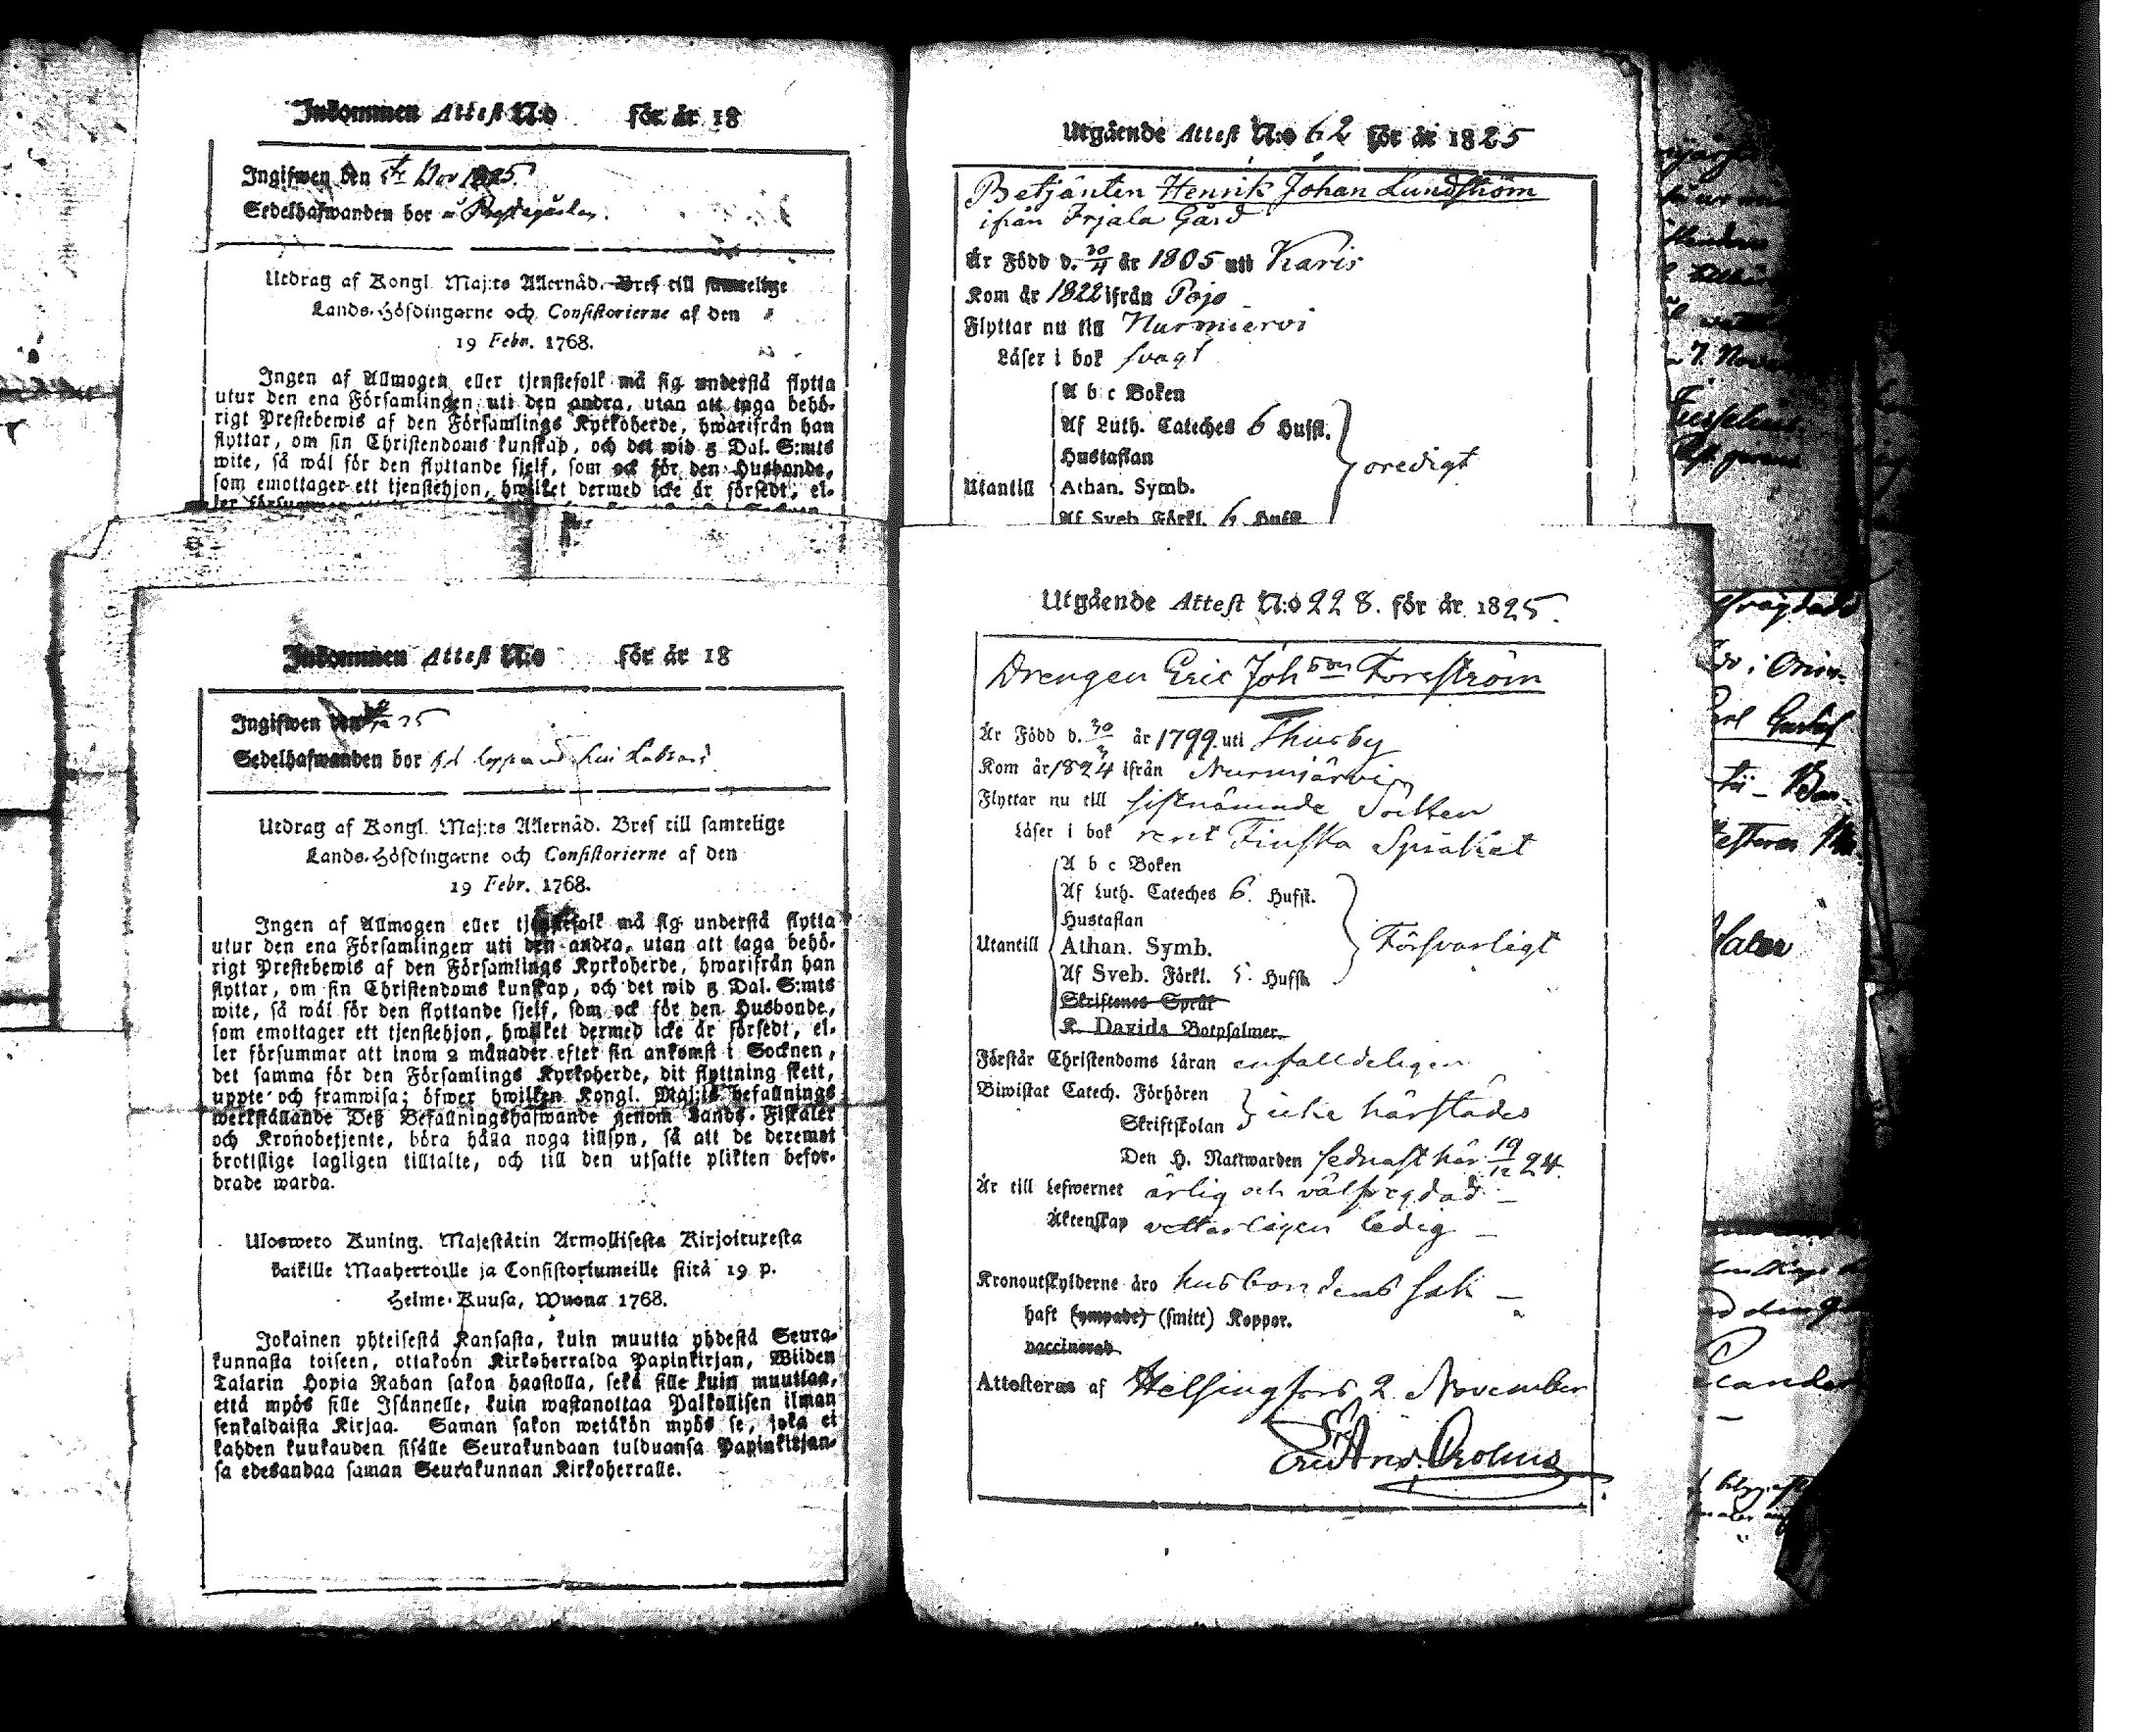 Inkommen Attest N:o för år 18
Ingifwen den Nov 1825.
Sedelhafwanden bor
Utdrag af Kongl. Maj:ts Allernåd. Bref till samtelige
Lands-Höfdingarne och Consistorierne af den
19 Febr. 1768.
Ingen af Allmogen eller tjenstefolk må sig understå flytta
utur den ena Församlingen uti den andra, utan att taga behö-
rigt Prestebewis af den Församlings Kyrkoherde, hwarifrån han
flyttar, om sin Christendoms kunskap, och det wid 5 Dal. S:mts
wite, så wäl för den flyttande sjelf, som ock för den Husbonde,
som emottager ett tjenstehjon, hwilket dermed icke är försedt, el-
Utgående Attest N:o 62 för år 1825
Betjänten Henrik Johan Lundström
ifrån Irjala Gård
Är Född d. 30/4 år 1805 uti Karis
Kom år 1822 ifrån Pojo
Flyttar nu till Nurmiervi
Läser i bok svagt
A b c Boken
Af Luth. Cateches 6 Hufst.
Hustaflan
Utantill Athan. Symb.
Af Sveb. Förkl. 6 Hufst.
oredigt
Inkommen Attest N:o för år 18
Ingifwen den 25
Sedelhafwanden bor
Utdrag af Kongl. Maj:ts Allernåd. Bref till samtelige
Lands-Höfdingarne och Consistorierne af den
19 Febr. 1768.
Ingen af Allmogen eller tjenstefolk må sig understå flytta
utur den ena Församlingen uti den andra, utan att taga behö-
rigt Prestebewis af den Församlings Kyrkoherde, hwarifrån han
flyttar, om sin Christendoms kunskap, och det wid 5 Dal. S:mts
wite, så wäl för den flyttande sjelf, som ock för den Husbonde,
som emottager ett tjenstehjon, hwilket dermed icke är försedt, el-
ler försummar att inom 2 månader efter sin ankomst i Socknen,
det samma för den Församlings Kyrkoherde, dit flyttning skett,
uppte och framwisa; öfwer hwilken Kongl. Maj:ts befallnings
werkställande Deß Befallningshafwande genom Lands-Fiskaler
och Kronobetjente, böra hålla noga tillsyn, så att de deremot
brottslige lagligen tilltalte, och till den utsatte plikten befor-
drade warda.
Ulosweto Kuning. Majestätin Armollisesta Kirjoituxesta
kaikille Maaherroille ja Consistoriumeille siitä 19 p.
Helme-Kuusa, Wuona 1768.
Jokainen yhteisestä Kansasta, kuin muutta yhdestä Seura-
kunnasta toiseen, ottakoon Kirkoherralda Papinkirjan, Wiiden
Talarin Hopia Rahan sakon haastolla, sekä sille kuin muuttaa,
että myös sille Isännelle, kuin wastanottaa Palkollisen ilman
senkaldaista Kirjaa. Saman sakon wetäkön myös se, joka ei
kahden kuukauden sisälle Seurakundaan tulduansa Papinkirjan-
sa edesandaa saman Seurakunnan Kirkoherralle.
Utgående Attest N:o 228. för år 1825.
Drengen Eric Johson Forsström
Är Född d. 30/3 år 1799. uti Thusby
Kom år 1824 ifrån Nurmijärvi
Flyttar nu till sistnämnde Socken
Läser i bok rent Finska Språket
A b c Boken
Af Luth. Cateches 6. Hufst.
Hustaflan
Utantill Athan. Symb.
Af Sveb. Förkl. 5. Hufst.
Skriftenes Språk
K. Davids Botpsalmer.
Försvarligt
Förstår Christendoms Läran enfalldeligen
Biwistat Catech. Förhören
Skriftskolan
icke härstädes
Den H. Nattwarden sednast här 19/12 24.
Är till Lefwernet ärlig och välfrägdad
Äktenskap vetterligen ledig
Kronoutskylderne äro husbondens sak
haft (ympade) (smitt) Koppor.
vaccinerad
Attesteras af Helsingfors 2. November